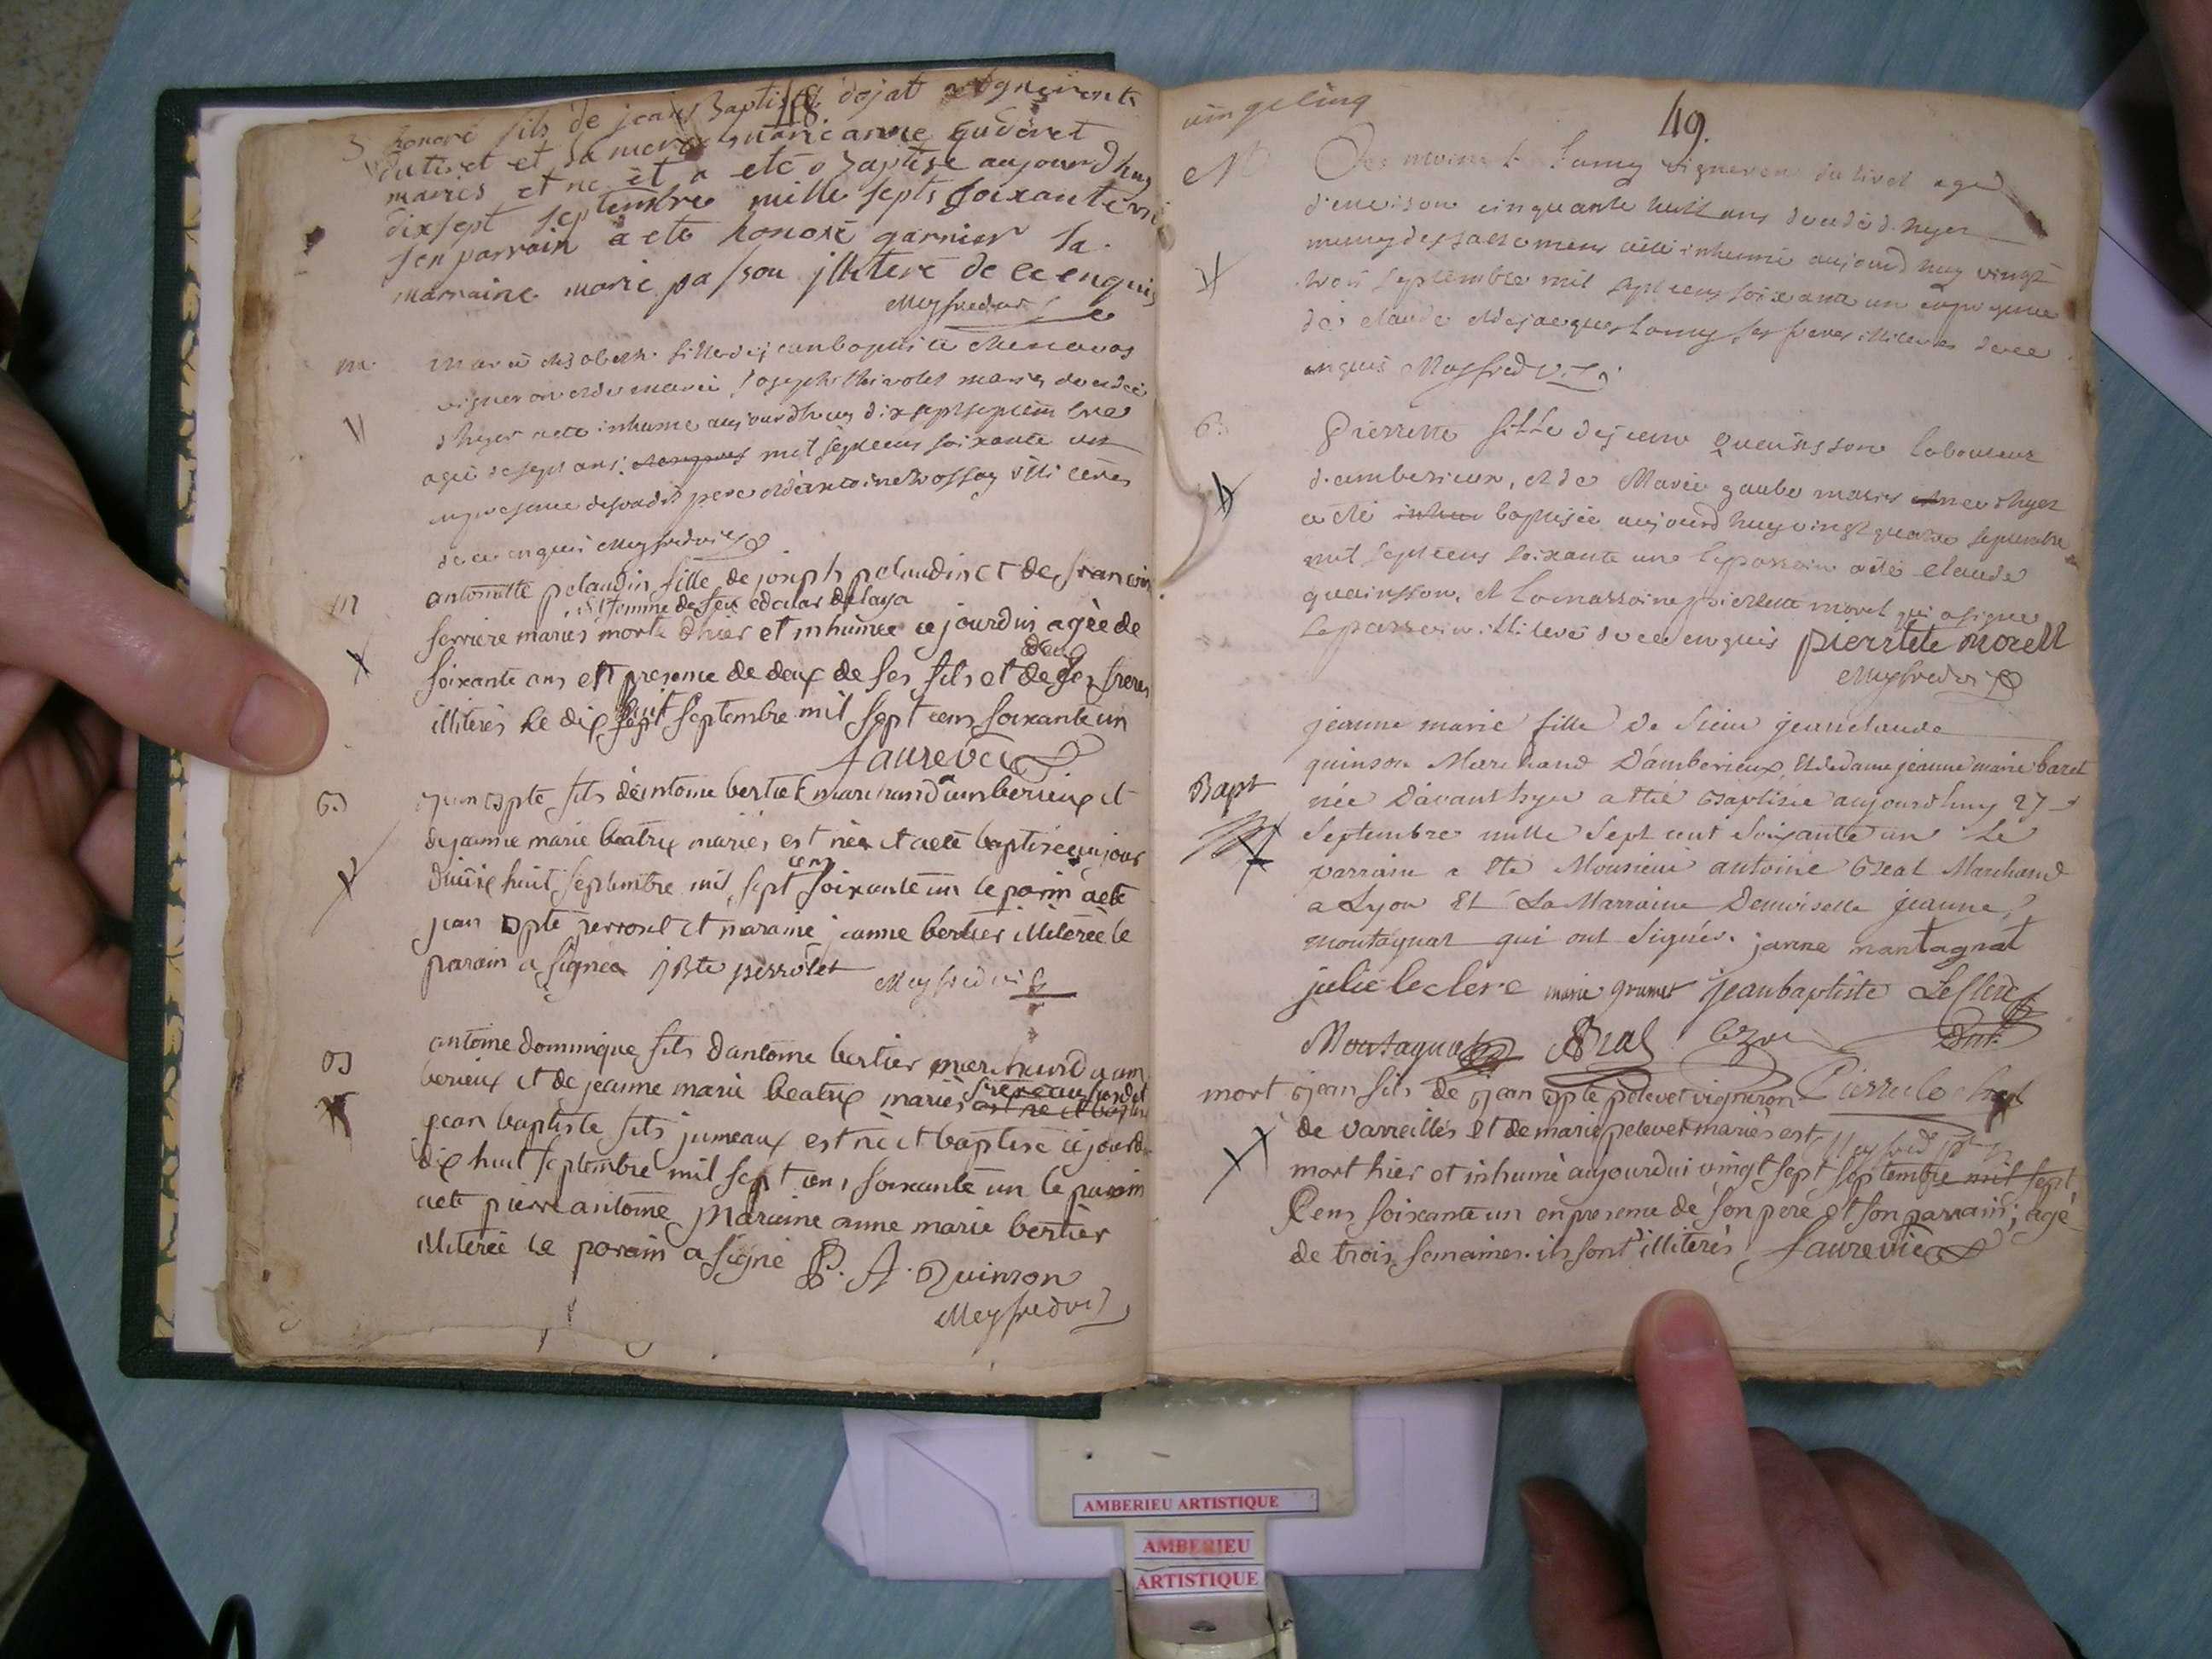 48.
honoré fils de jean Baptiste dojat vigneront
dutiret et sa mere marie anne
mariés et né et a eté Baptisé aujourdhuy
dixsept septembre mille septs soixante
son parrain a eté honoré garnier sa
marraine marie passou illiteré de ce enquis
Meyfredus
m
marie elisabeth fille de jean baptiste
vigneron et de marie joseph thivolet mariés decedée
dhyer a eté inhumé aujourdhuy dixsept septembre
agée de sept ans mil septcens soixante un
en presence desdit pere et antoine illiteres
de ce enquis Meyfredus
m
antoinette pelaudin fille de joseph pelaudin et de
et femme de feu
ferriere mariés morte dhier et inhumée ce jourdui agée de
deux
soixante ans en presence de deux de ses fils et de ses freres
huit
illiterés le dix sept septembre mil sept cens soixante un
faure vic
B
jean bpte fils dantoine bertier marchand amberieux et
de jeanne marie beatrix mariés est née et a eté baptisé aujour
cens
dui dix huit septembre mil sept soixante un le parin a eté
jean bpte perrolet et maraine jeanne bertier illiterée le
parain a signéa jBte perrolet Meyfredus
B
antoine dominique fils dantoine bertier marchand a am
berieux et de jeanne marie beatrix mariés frereausurdit
est né et baptisé
jean baptiste fils jumeaux est né et baptisé ce jourd
dix huit septembre mil sept cens soixante un le parain
a eté pierre antoine Maraine anne marie bertier
illiterée le parain a signé P. A. Quinson
Meyfredus
49.
M
lamy vigneron du tiret agé
denvison cinquante huit ans decedé dhyer
muny des sacremens a eté inhumé aujourdhuy vingt
trois septembre mil septcens soixante un en presence
de claude et de jacques Lamy ses freres illiteres de ce
enquis Meyfredus
B
Pierrette fille de jean quinsson laboureur
damberieux, et de Marie gaube mariés née dhyer
a eté inhu baptisée aujourdhuy vingt quatre septembre
mil septcens soixante un le parrain a eté claude
quainsson, et la marraine pierrette morel qui a signé
le parrain illiteré de ce enquis pierrete morell
Meyfredus
jeanne marie fille de sieur jeanclaude
quinson Marchand D'amberieux, et de dame jeanne marie baret
Bapt
née Davanthyer a été Baptisée aujourdhuy 27
septembre mille sept cent soixante un Le
parrain a été Monsieur antoine Breal Marchand
a Lyon Et La Marraine Demoiselle jeanne
montagnat qui ont signés. janne mantagnat
julie leclerc marie grumet jeanbaptiste Leclerc
Montagnat
mort jean fils de jean bpte pelevet vigneron
Pierre le
de varreilles et de marie pelevet mariés est
Meyfred
mort hier et inhumé aujourdui vingt sept septembre mil sept
Cens soixante un en presence de son pere et son parrain; agé
de trois semaines. ils sont illiterés faure vic
AMBERIEU ARTISTIQUE
AMBERIEU
ARTISTIQUE